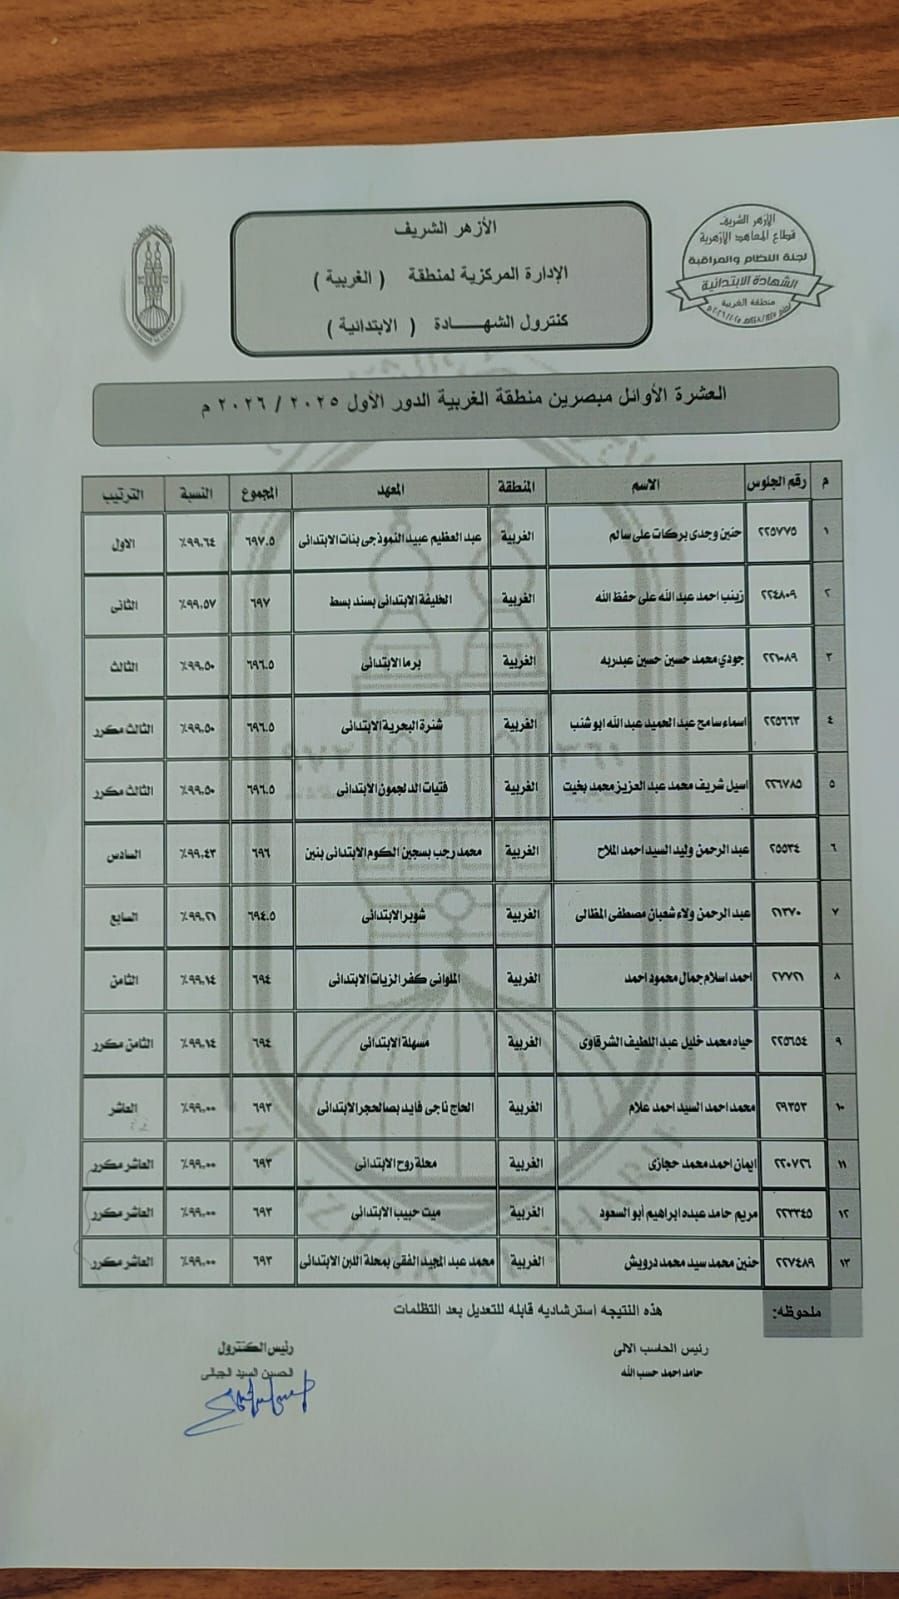 الأزهر الشريف
قطاع المعاهد الأزهرية
لجنة النظام والمراقبة
الشهادة الابتدائية
منطقة الغربية
الأزهر الشريف
الإدارة المركزية لمنطقة ( الغربية )
كنترول الشهـــــادة ( الابتدائية )
العشرة الأوائل مبصرين منطقة الغربية الدور الأول ٢٠٢٥ / ٢٠٢٦ م
م رقم الجلوس الاسم المنطقة المعهد المجموع النسبة الترتيب
١ ٢٢٥٧٧٥ حنين وجدى بركات على سالم الغربية عبد العظيم عبيد النموذجى بنات الابتدائى ٦٩٧.٥ ٩٩.٦٤٪ الاول
٢ ٢٢٤٨٠٩ زينب احمد عبد الله على حفظ الله الغربية الخليفة الابتدائى بسند بسط ٦٩٧ ٩٩.٥٧٪ الثانى
٣ ٢٢١٠٨٩ جودي محمد حسين حسين عبدربه الغربية برما الابتدائى ٦٩٦.٥ ٩٩.٥٠٪ الثالث
٤ ٢٢٥٦٦٣ اسماء سامح عبد الحميد عبد الله ابو شنب الغربية شنرة البحرية الابتدائى ٦٩٦.٥ ٩٩.٥٠٪ الثالث مكرر
٥ ٢٢٦٧٨٥ اسيل شريف محمد عبد العزيز محمد بخيت الغربية فتيات الدلجمون الابتدائى ٦٩٦.٥ ٩٩.٥٠٪ الثالث مكرر
٦ ٢٥٥٣٤ عبد الرحمن وليد السيد احمد الملاح الغربية محمد رجب بسجين الكوم الابتدائى بنين ٦٩٦ ٩٩.٤٣٪ السادس
٧ ٢١٣٧٠ عبد الرحمن ولاء شعبان مصطفى المظالى الغربية شوبر الابتدائى ٦٩٤.٥ ٩٩.٢١٪ السابع
٨ ٢٧٧٢١ احمد اسلام جمال محمود احمد الغربية الملوانى كفر الزيات الابتدائى ٦٩٤ ٩٩.١٤٪ الثامن
٩ ٢٢٥٦٥٤ حياه محمد خليل عبد اللطيف الشرقاوى الغربية مسهلة الابتدائى ٦٩٤ ٩٩.١٤٪ الثامن مكرر
١٠ ٢٩٣٥٣ محمد احمد السيد احمد علام الغربية الحاج ناجى فايد بصالحجر الابتدائى ٦٩٣ ٩٩.٠٠٪ العاشر
١١ ٢٢٠٧٢٦ ايمان احمد محمد حجازى الغربية محلة روح الابتدائى ٦٩٣ ٩٩.٠٠٪ العاشر مكرر
١٢ ٢٢٣٣٤٥ مريم حامد عبده ابراهيم أبو السعود الغربية ميت حبيب الابتدائى ٦٩٣ ٩٩.٠٠٪ العاشر مكرر
١٣ ٢٢٧٤٨٩ حنين محمد سيد محمد درويش الغربية محمد عبد المجيد الفقى بمحلة اللبن الابتدائى ٦٩٣ ٩٩.٠٠٪ العاشر مكرر
ملحوظه: هذه النتيجه استرشاديه قابله للتعديل بعد التظلمات
رئيس الحاسب الالى رئيس الكنترول
حامد احمد حسب الله الحسين السيد الجبالى